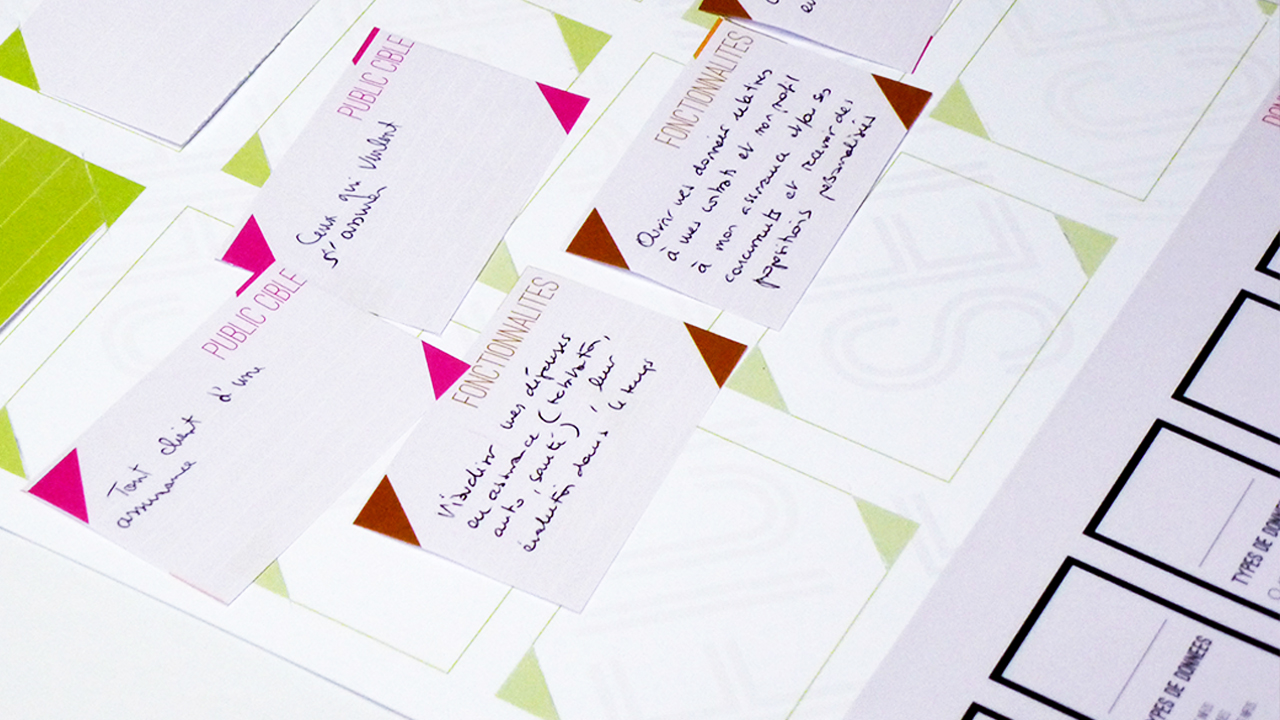 PUBLIC CIBLE
Ceux qui veulent
s'assurer
FONCTIONNALITES
Ouvrir mes données relatives
à mes contrats et mon profil
à mon assurance et/ou ses
concurrents et recevoir des
propositions personnalisées
PUBLIC CIBLE
Tout client d'une
assurance
FONCTIONNALITES
Visualiser mes dépenses
en assurance (habitation,
auto, santé), leur
évolution dans le temps
TYPES DE DONNEES
TYPES DE DONNEES